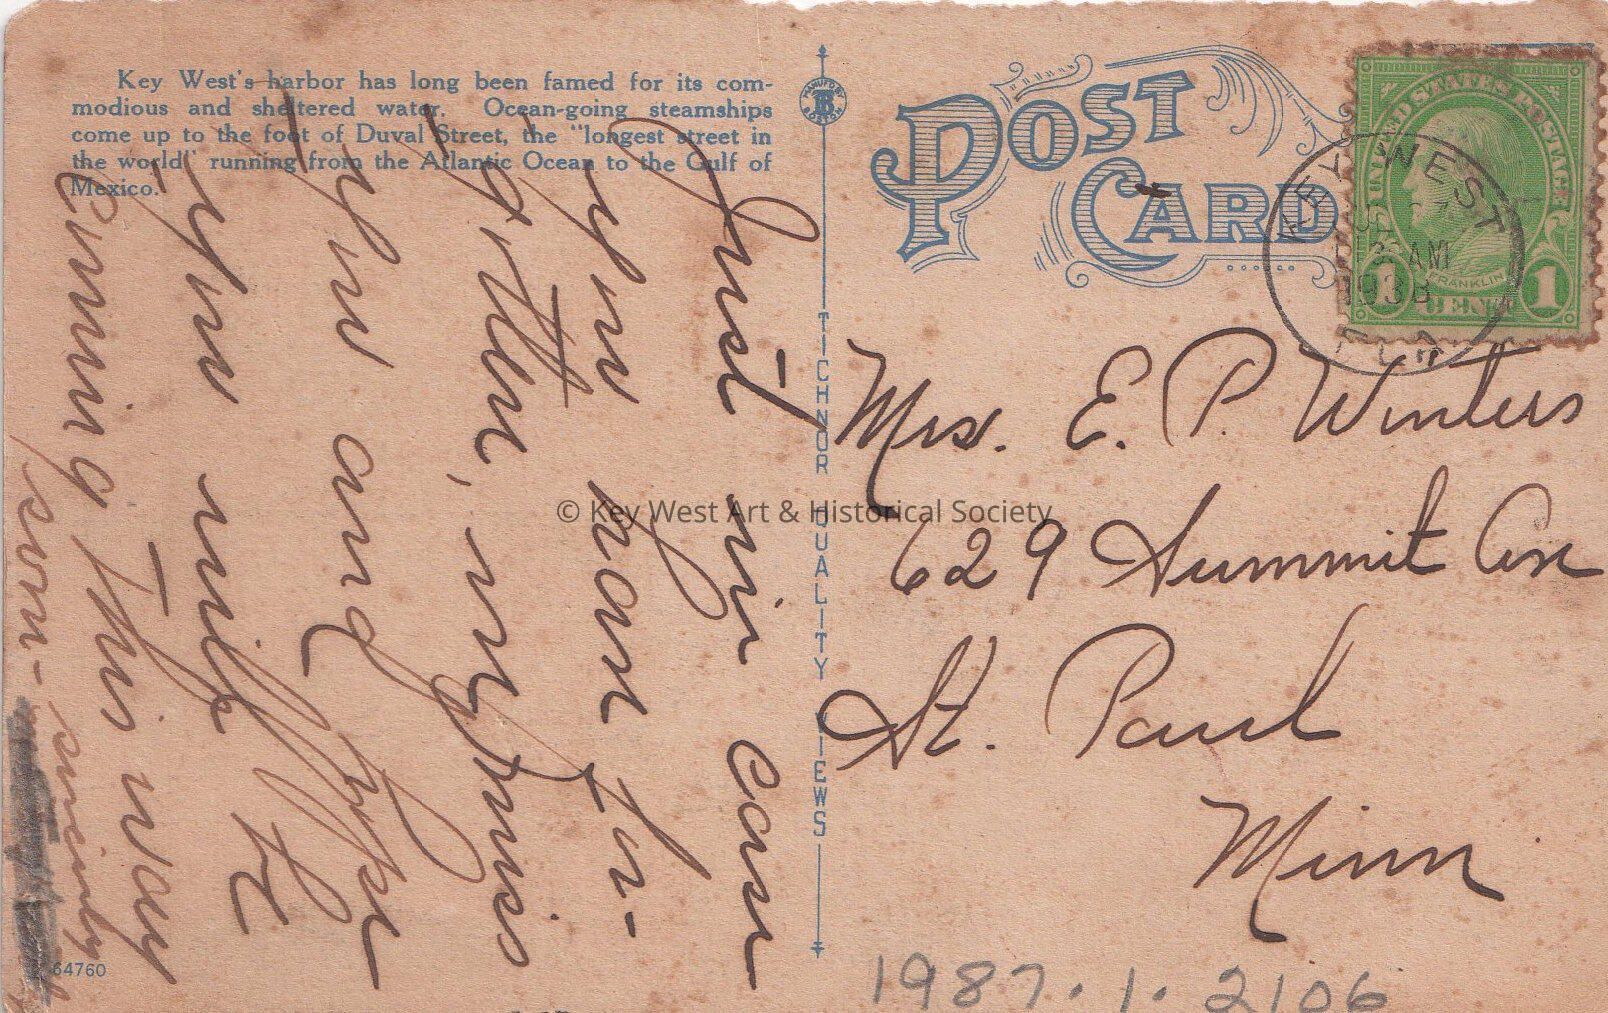 Key West's harbor has long been famed for its com-
modious and sheltered water. Ocean-going steamships
come up to the foot of Duval Street, the "longest street in
the world" running from the Atlantic Ocean to the Gulf of
Mexico.
POST CARD
MANUF'D BY
TB
BOSTON
TICHNOR QUALITY VIEWS
UNITED STATES POSTAGE
FRANKLIN
1 CENT 1
KEY WEST
3 AM
193
FLA
Just in case
you have for-
gotten, we miss
you and hope
you will be
coming this way
soon - sincerely
Mrs. E. P. Winters
629 Summit Ave
St. Paul
Minn
64760
1987.1.2106
© Key West Art & Historical Society